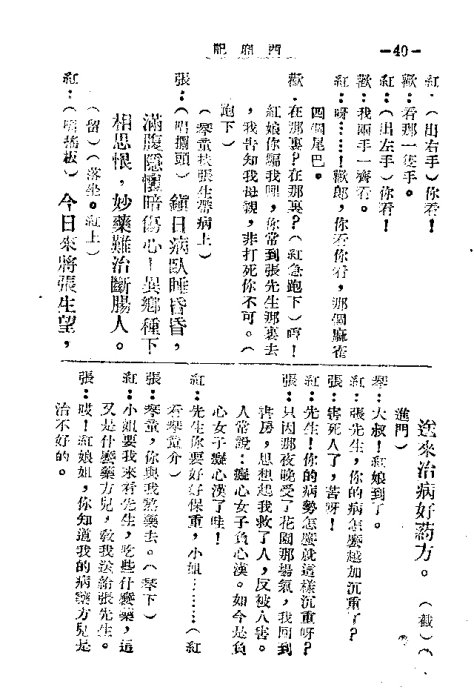 西廂記
—40—
紅:(出右手)你看!
歡:看那一隻手。
紅:(出左手)你看!
歡:我兩手一齊看。
紅:呀……!歡郎,你看你看,那個麻雀
四個尾巴。
歡:在那裏?在那裏?(紅急跑下)哼!
紅娘你騙我哩,你常到張先生那裏去
,我告知我母親,非打死你不可。(
跑下)
(琴童扶張生帶病上)
張:(唱攔頭)鎮日病臥睡昏昏,
滿腹隱懷暗傷心!異鄉種下
相思恨,妙藥難治斷腸人。
(留)(落坐。紅上)
紅:(唱搖板)今日來將張生望,
送來治病好葯方。(截)(
進門)
琴:大叔!紅娘到了。
紅:張先生,你的病怎麽越加沉重了?
張:害死人了,苦呀!
紅:先生!你的病勢怎麽就這樣沉重呀?
張:只因那夜晚受了花園那場氣,我回到
書房,思想起我救了人,反被人害。
人常說:癡心女子負心漢。如今是負
心女子癡心漢了哇!
紅:先生你要好好保重,小姐………(紅
看琴童介)
張:琴童,你與我熬藥去。(琴下)
紅:小姐要我來看先生,吃些什麽藥,這
又是什麽藥方兒,敎我送給張先生。
張:哎!紅娘姐,你知道我的病藥方兒是
治不好的。